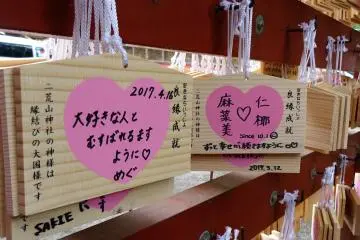 良縁成就
2017.4.16
大好きな人と
むすばれるます
ように♡
めぐ
二荒山神社の神様は
縁結びの大国様です
良縁成就
仁椰
♡
麻菜美
Since 10.1
ずっと幸せが続きますように
2017.3.12
SAKIE